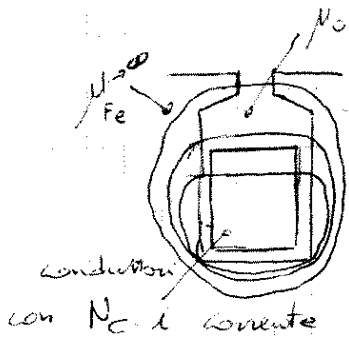 μ₀
μ→∞
Fe
conduttori
con Nc i corrente